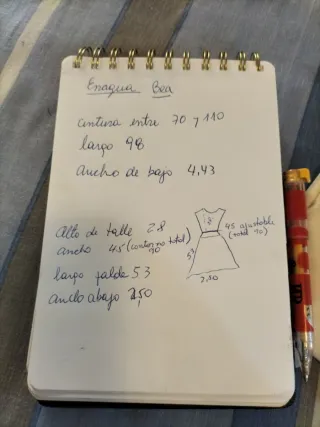 Enagua Bea
cintura entre 70 y 110
largo 98
ancho de bajo 4,43
Alto de talle 28
ancho 45 (contorno total)
90
largo falda 53
ancho abajo 2,50
28
45 ajustable
(total 90)
53
2,50